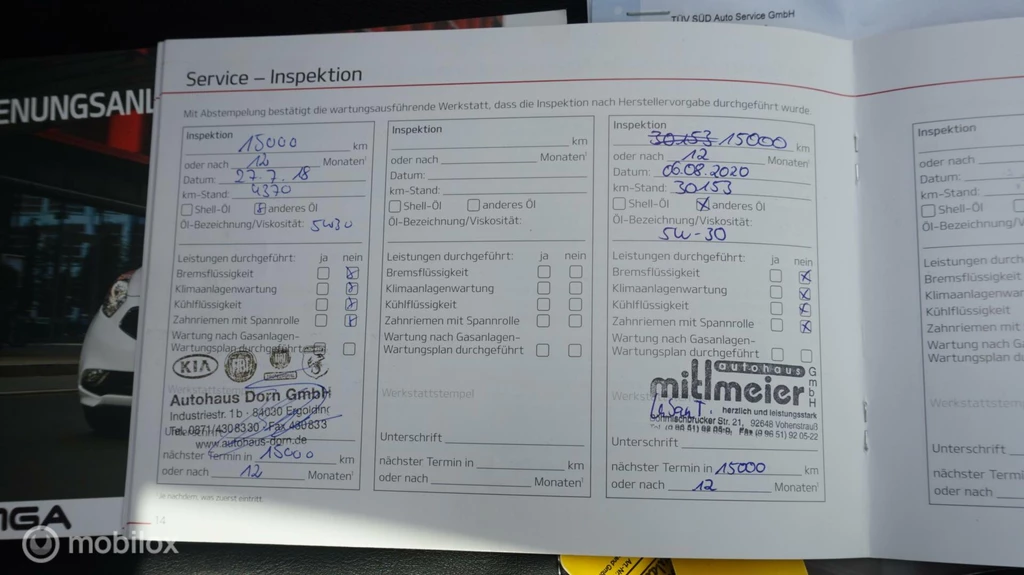 TÜV SÜD Auto Service GmbH
ENUNGSANL
Service – Inspektion
Mit Abstempelung bestätigt die wartungsausführende Werkstatt, dass die Inspektion nach Herstellervorgabe durchgeführt wurde
Inspektion
15000 km
oder nach 12 Monaten¹
Datum: 27.7.18
km-Stand: 4370
Shell-Öl anderes Öl
Öl-Bezeichnung/Viskosität: 5W30
Leistungen durchgeführt: ja nein
Bremsflüssigkeit
Klimaanlagenwartung
Kühlflüssigkeit
Zahnriemen mit Spannrolle
Wartung nach Gasanlagen-
Wartungsplan durchgeführt
KIA
Werkstattstempel
Autohaus Dorn GmbH
Industriestr. 1b · 84030 Ergolding
Tel. 0871/4308330 · Fax 430833
www.autohaus-dorn.de
nächster Termin in 15000 km
oder nach 12 Monaten¹
¹ Je nachdem, was zuerst eintritt.
14
Inspektion
km
oder nach Monaten¹
Datum:
km-Stand:
Shell-Öl anderes Öl
Öl-Bezeichnung/Viskosität:
Leistungen durchgeführt: ja nein
Bremsflüssigkeit
Klimaanlagenwartung
Kühlflüssigkeit
Zahnriemen mit Spannrolle
Wartung nach Gasanlagen-
Wartungsplan durchgeführt
Werkstattstempel
Unterschrift
nächster Termin in km
oder nach Monaten¹
Inspektion
30153 15000 km
oder nach 12 Monaten¹
Datum: 06.08.2020
km-Stand: 30153
Shell-Öl anderes Öl
Öl-Bezeichnung/Viskosität:
5W-30
Leistungen durchgeführt: ja nein
Bremsflüssigkeit
Klimaanlagenwartung
Kühlflüssigkeit
Zahnriemen mit Spannrolle
Wartung nach Gasanlagen-
Wartungsplan durchgeführt
autohaus
mitlmeier GmbH
herzlich und leistungsstark
Schmischbrucker Str. 21, 92648 Vohenstrauß
Fax (0 96 51) 92 05-22
Unterschrift
nächster Termin in 15000 km
oder nach 12 Monaten¹
Inspektion
oder nach
Datum:
km-Stand:
Shell-Öl
Öl-Bezeichnung/Visko
Leistungen durchge
Bremsflüssigkeit
Klimaanlagenwar
Kühlflüssigkeit
Zahnriemen mit
Wartung nach Ga
Wartungsplan du
Werkstattstem
Unterschrift
nächster Termi
oder nach
NGA
mobilox